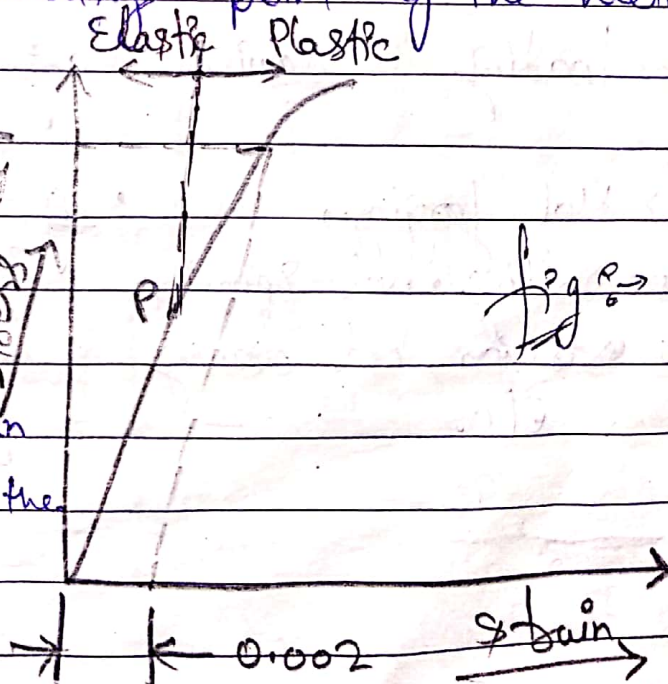 of the
Elastic Plastic
P
fig :→
n
the
0.002 strain